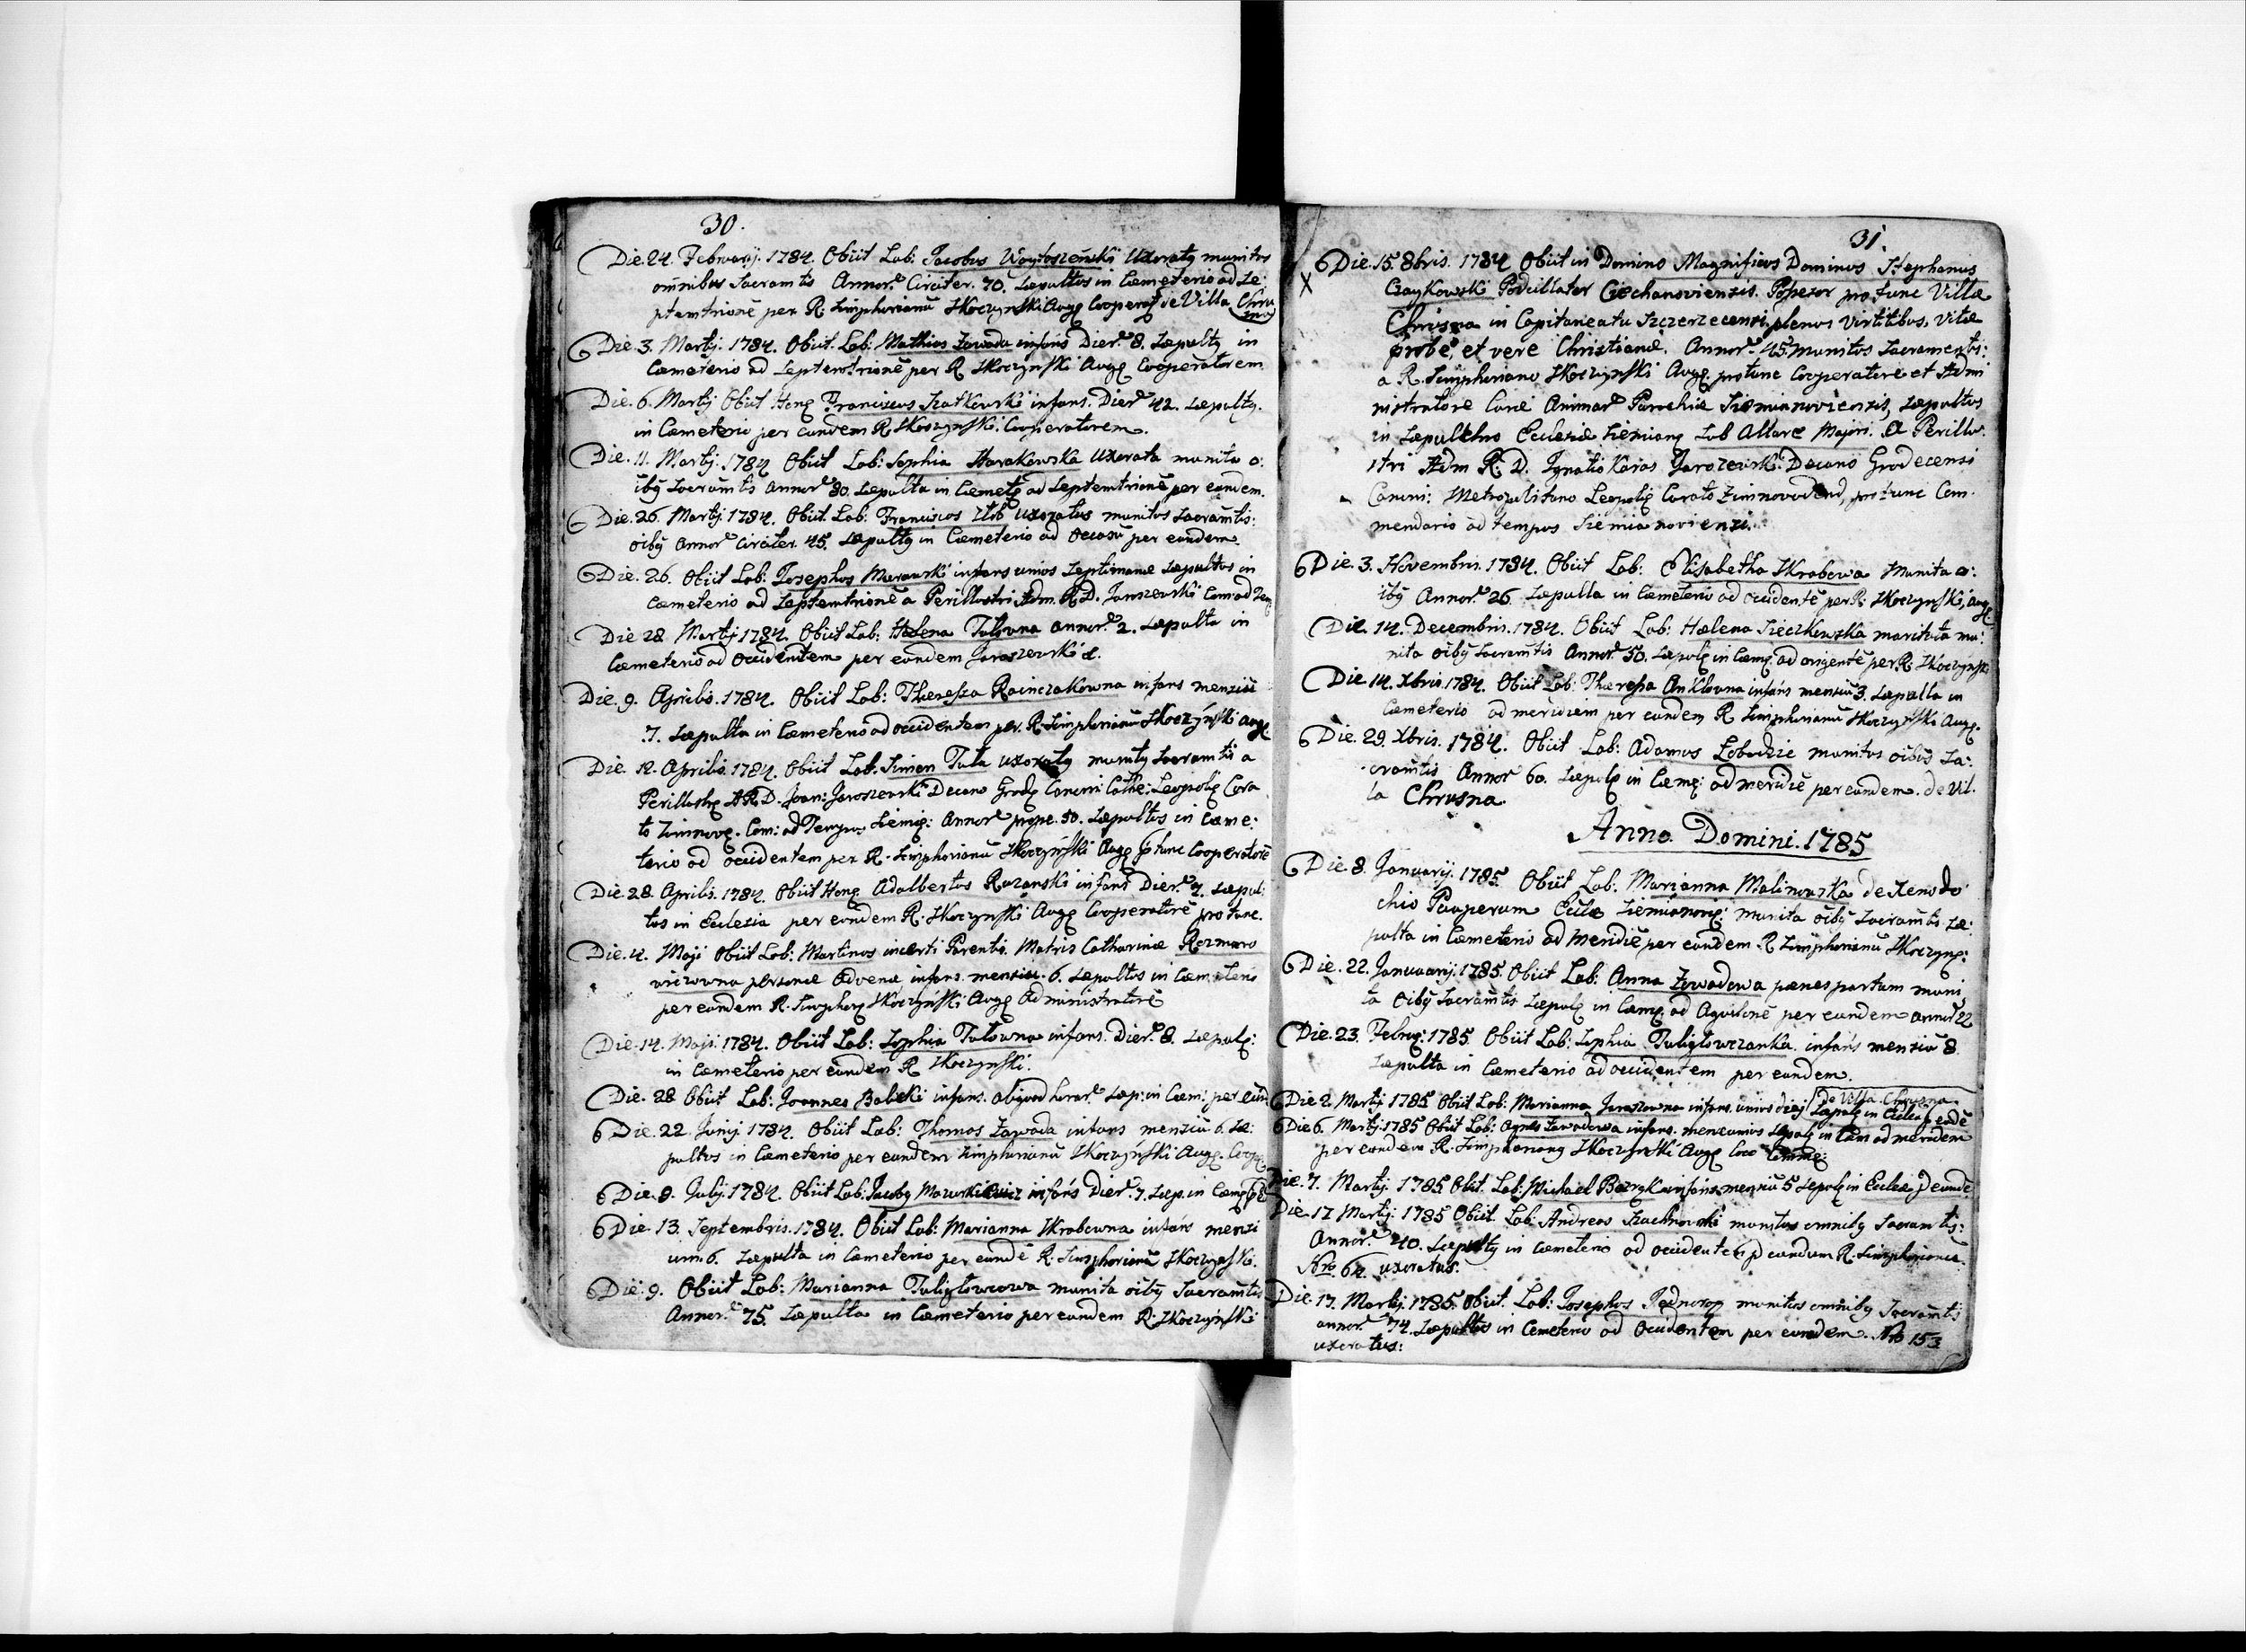 30.
Die. 24. Februarij. 1784. Obiit Lab: Jacobus Woytoszeński Uxoratq munitus
omnibus Sacramtis Annor. Circiter. 70. Sæpultus in Cæmeterio ad Se:
ptemtrionē per R. Simphorianū Skoczynſki Augq Cooperatq de Villa Chru
sno
Die. 3. Martij. 1784. Obiit. Lab: Mathias Zawada infans Dier. 8. Sæpultq in
Cæmeterio ad Septemtrionē per R Skoczynſki Augq Cooperatorem
Die. 6. Martij Obiit Honq Franciscus Szatkowski infans. Dier. 42. Sæpultq.
in Cæmeterio per eundem R Skoczynſki. Cooperatorem.
Die. 11. Martij. 1784 Obiit Lab: Sophia Harakowska Uxorata munita o:
ibq Sacramtis Annor. 80. Sæpulta in Cæmetq ad Septemtrionē per eundem.
Die. 26. Martij. 1784. Obiit. Lab: Franciscus Zlob uxoratus munitus Sacramtis:
oibq Annor circiter. 45. Sæpultq in Cæmeterio ad Occasū per eundem.
Die. 26. Obiit Lab: Josephus Murawski infans unius Septimanæ Sæpultus in
Cæmeterio ad Septemtrionē a Perillustri Adm. R. D. Jaroszewski Com ad Temq
Die 28. Martij 1784. Obiit Lab: Helena Tutowna annor. 2. Sæpulta in
Cæmeterio ad Occidentem per eundem Jaroszewski
Die. 9. Aprilis. 1784. Obiit Lab: Theressa Rainczakowna infans mensiū
7. Sæpulta in Cæmeterio ad occidentem per R. Simphorianū Skoczyńſki Augq
Die. 12. Aprilis. 1784. Obiit Lab. Simon Tuta uxoratq munitq Sacramtis a
Perillustrq A R D. Joan: Jaroszewski Decano Grodq Canoni Cathe: Leopolq Cura
to Zimnovq. Com: ad Tempus Siemq: Annor prope. 50. Sæpultus in Cæme:
terio ad occidentem per R. Simphorianū Skoczyńſki Augq p tunc Cooperatorē
Die. 28. Aprilis. 1784. Obiit Honq Adalbertus Razanski infans Dier. 7. Sæpul:
tus in Ecclesia per eundem R. Skoczynſki Augq Cooperatorē pro tunc.
Die. 4. Maji Obiit Lab: Martinus incerti Parentis. Matris Catharinæ Rozmaro
wiczowna personæ Advenæ infans. mensiu. 6. Sæpultus in Cæmeterio
per eundem R. Simphorq Skoczyńſki Augq Administratorē
Die. 14. Maji. 1784. Obiit Lab: Sophia Tutowna infans. Dier. 8. Sæpulq:
in Cæmeterio per eundem R Skoczynſki.
Die. 28 Obiit Lab: Joannes Babski infans. aliquod horar. Sæp: in Cæm: per eūn
Die. 22. Junij. 1784. Obiit Lab: Thomas Zawada infans mensiū 6. Sæ:
pultus in Cæmeterio per eundem Simphorianū Skoczyńſki Augq. Coopq
Die. 8. Julij. 1784. Obiit Lab: Jacobq Mazurkiewicz infans Dier. 7. Sæp. in Cæmq p E
Die. 13. Septembris. 1784. Obiit Lab: Marianna Skrobowna infans mensi
um 6. Sæpulta in Cæmeterio per eundē R. Simphorianū Skoczynſki.
Die. 9. Obiit Lab: Marianna Tuliglowiowa munita oibq Sacramtis
Annor. 75. Sæpulta in Cæmeterio per eundem R. Skoczyńſki
31.
Die. 15. 8bris. 1784 Obiit in Domino Magnificus Dominus Stephanus
X
Czaykowski Podcillater Ciechanoviensis. Possesor pro tunc Villæ
Chrusna in Capitaneatu Szczerzecensi, plenus virtutibus, vitæ
probe, et vere Christianæ. Annor. 45. Munitus Sacramentis:
a R. Simphoriano Skoczynſki Augq pro tunc Cooperatore et Admi
nistratore Curæ Animar Parochiæ Siemianoviensis, Sæpultus
in Sæpulchro Ecclesiæ Siemianq Sub Altare Majori. A Perillu:
stri Adm R. D. Ignatio Karas Jaroszewski Decano Grodecensi
Canoni: Metropolitano Leopolq Curato Zimnovodensi, pro tunc Com:
mendario ad tempus Siemianoviensi.
Die. 3. Novembris. 1784. Obiit Lab: Elisabetha Skrobowa Munita o:
ibq Annor. 26. Sæpulta in Cæmeterio ad occidentē per R. Skoczynſki, Augq
Die. 14. Decembris. 1784. Obiit Lab: Hælena Sieczkowska maritata mu:
nita oibq Sacramtis Annor. 50. Sæpulq in Cæmq. ad origentē per R. Skoczynſki
Die. 14. Xbris. 1784. Obiit Lab: Theressa Anklowna infans mensiū 3. Sæpulta in
Cæmeterio ad meridiem per eundem R Simphorianū Skoczynſki Augq.
Die. 29. Xbris. 1784. Obiit Lab: Adamus Łobodzic munitus oibus Sa:
cramtis Annor 60. Sæpulq in Cæmq: ad meridiē per eundem. de Vil.
la Chrusna.
Anno. Domini. 1785
Die. 8. Januarij. 1785. Obiit Lab: Marianna Malinowska de Xenodo
chio Pauperum Ecclæ Siemianovq: munita oibq Sacramtis. Sæ:
pulta in Cæmeterio ad Meridiē per eundem R Simphorianū Skoczynq:
Die. 22. Januarij. 1785. Obiit Lab: Anna Zawadowa pænes partum muni
ta oibq Sacramtis Sæpulq in Cæmq. ad Aquilonē per eundem annor 22
Die. 23. Februq: 1785. Obiit Lab: Sophia Tuliglowczanka. infans mensiū 8.
Sæpulta in Cæmeterio ad occidentem per eundem.
De Villa Chrusna.
Die 2. Martij 1785 Obiit Lab: Marianna Jaroszowna infans. unius diej Sæpulq in Ecclesq p eundē
Die 6. Martij. 1785 Obiit Lab: Agnes Zawadowa infans. mens unius Sæpulq in Cæm ad meridiem
per eundem R. Simphorianq Skoczynſki Augq loco Commq:
Die. 7. Martij. 1785. Obiit. Lab: Michael infans mensiū 5 Sæpulq in Ecclea p eundē
Die. 17 Martij. 1785 Obiit. Lab: Andreas Szachnowski munitus omnibq Sacramtis:
Annor. 40. Sæpultq in Cæmeterio ad occidentem p eundum R. Simphorianū
Nro 64. uxoratus.
Die 17. Martij. 1785. Obiit. Lab: Josephus Jednorog munitus omnibq Sacramtis
annor. 74. Sæpultus in Cemeterio ad Occidentem per eundem. Nro 153
uxoratus: